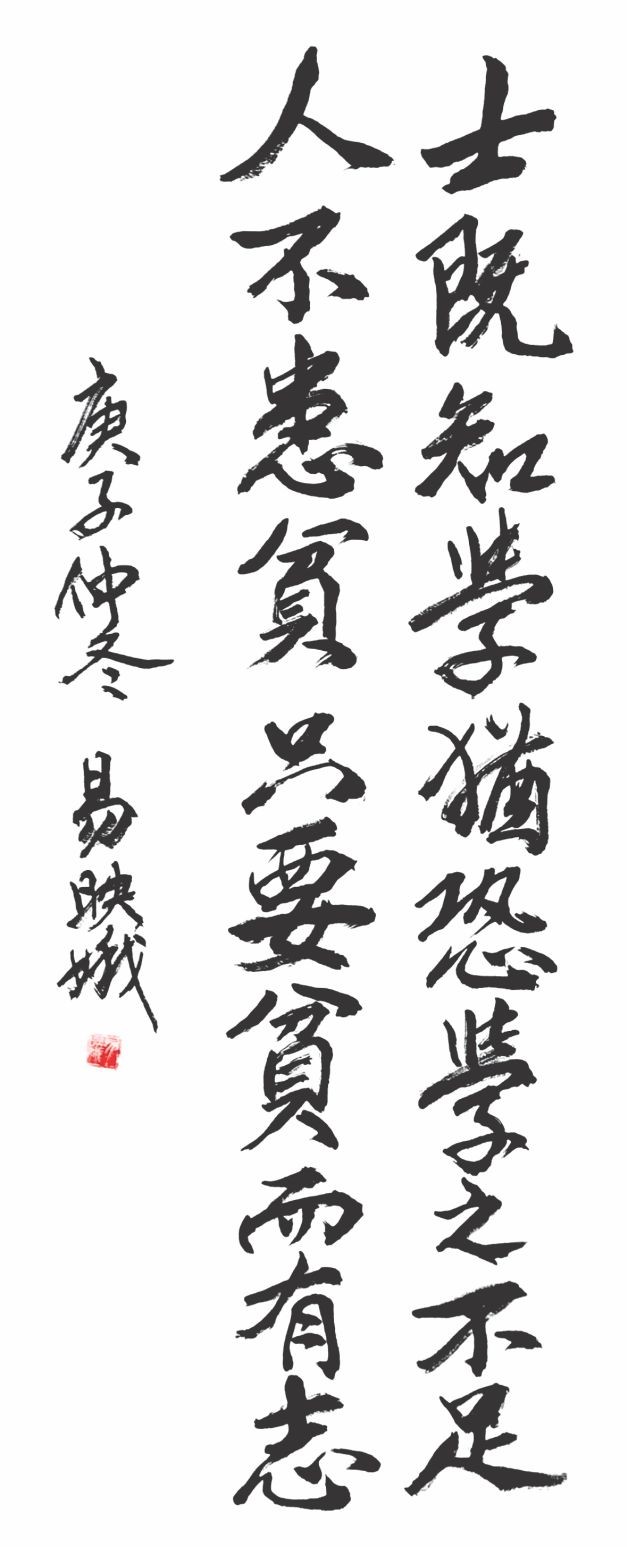 士既知學猶恐學之不足
人不患貧只要貧而有志
庚子仲冬 易映娥